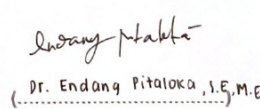 Endang Pitaloka
(Dr. Endang Pitaloka, S.E, M.E